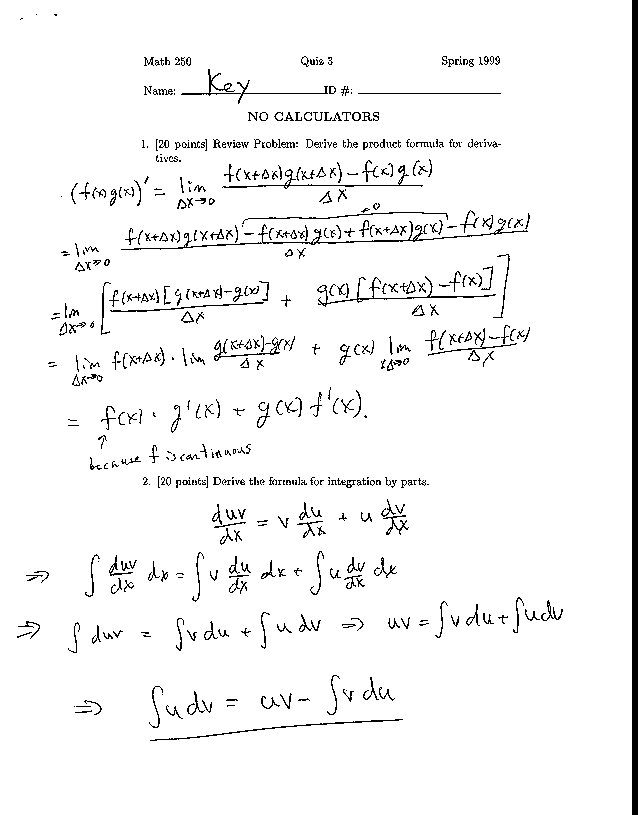 Math 250 Quiz 3 Spring 1999
Name: Key ID #:
NO CALCULATORS
1. [20 points] Review Problem: Derive the product formula for deriva-
tives.
(f(x)g(x))' = lim_{Δx→0} (f(x+Δx)g(x+Δx) − f(x)g(x)) / Δx
= lim_{Δx→0} (f(x+Δx)g(x+Δx) − f(x+Δx)g(x) + f(x+Δx)g(x) − f(x)g(x)) / Δx
=0
= lim_{Δx→0} [ f(x+Δx)[g(x+Δx)−g(x)] / Δx + g(x)[f(x+Δx)−f(x)] / Δx ]
= lim_{Δx→0} f(x+Δx) · lim (g(x+Δx)−g(x)) / Δx + g(x) lim_{Δx→0} (f(x+Δx)−f(x)) / Δx
= f(x) · g'(x) + g(x) f'(x).
↑
because f is continuous
2. [20 points] Derive the formula for integration by parts.
duv/dx = v du/dx + u dv/dx
⇒ ∫ duv/dx dx = ∫ v du/dx dx + ∫ u dv/dx dx
⇒ ∫ duv = ∫ v du + ∫ u dv ⇒ uv = ∫ v du + ∫ u dv
⇒ ∫ u dv = uv − ∫ v du